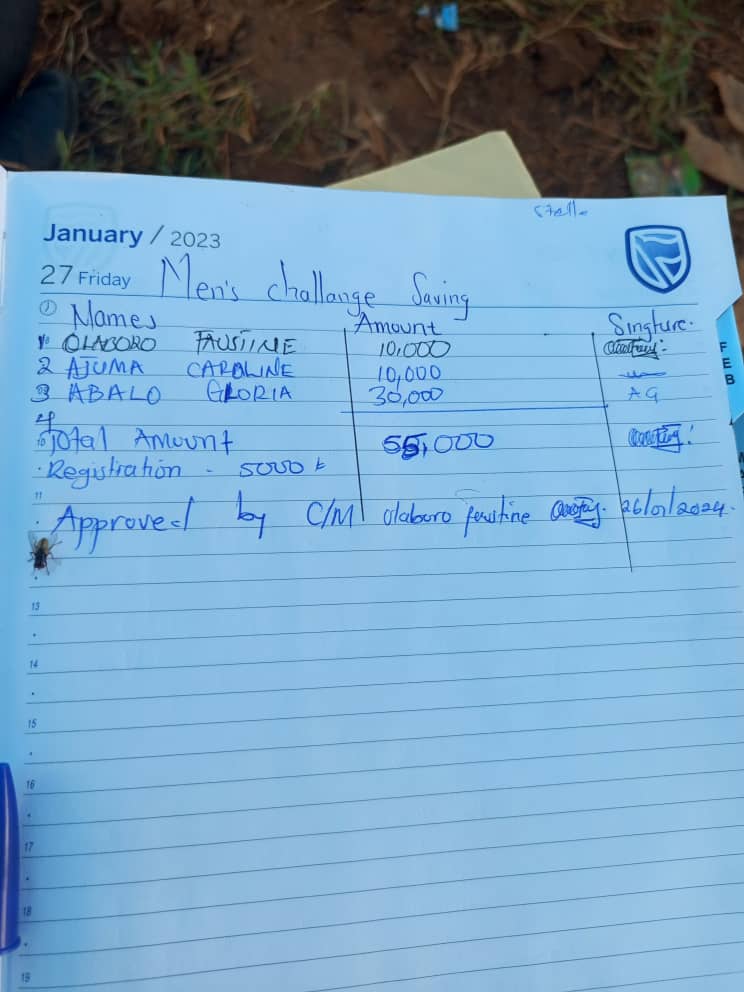 Stella
January / 2023
27 Friday Men's challange Saving
Names Amount Singture.
1. OLABORO FAUSTINE 10,000
2 AJUMA CAROLINE 10,000
3 ABALO GLORIA 30,000 AG
4
Total Amount 55,000
Registration - 5000
11
Approved by C/M Olaboro faustine 26/01/2024.
13
14
15
16
17
18
19
F
E
B